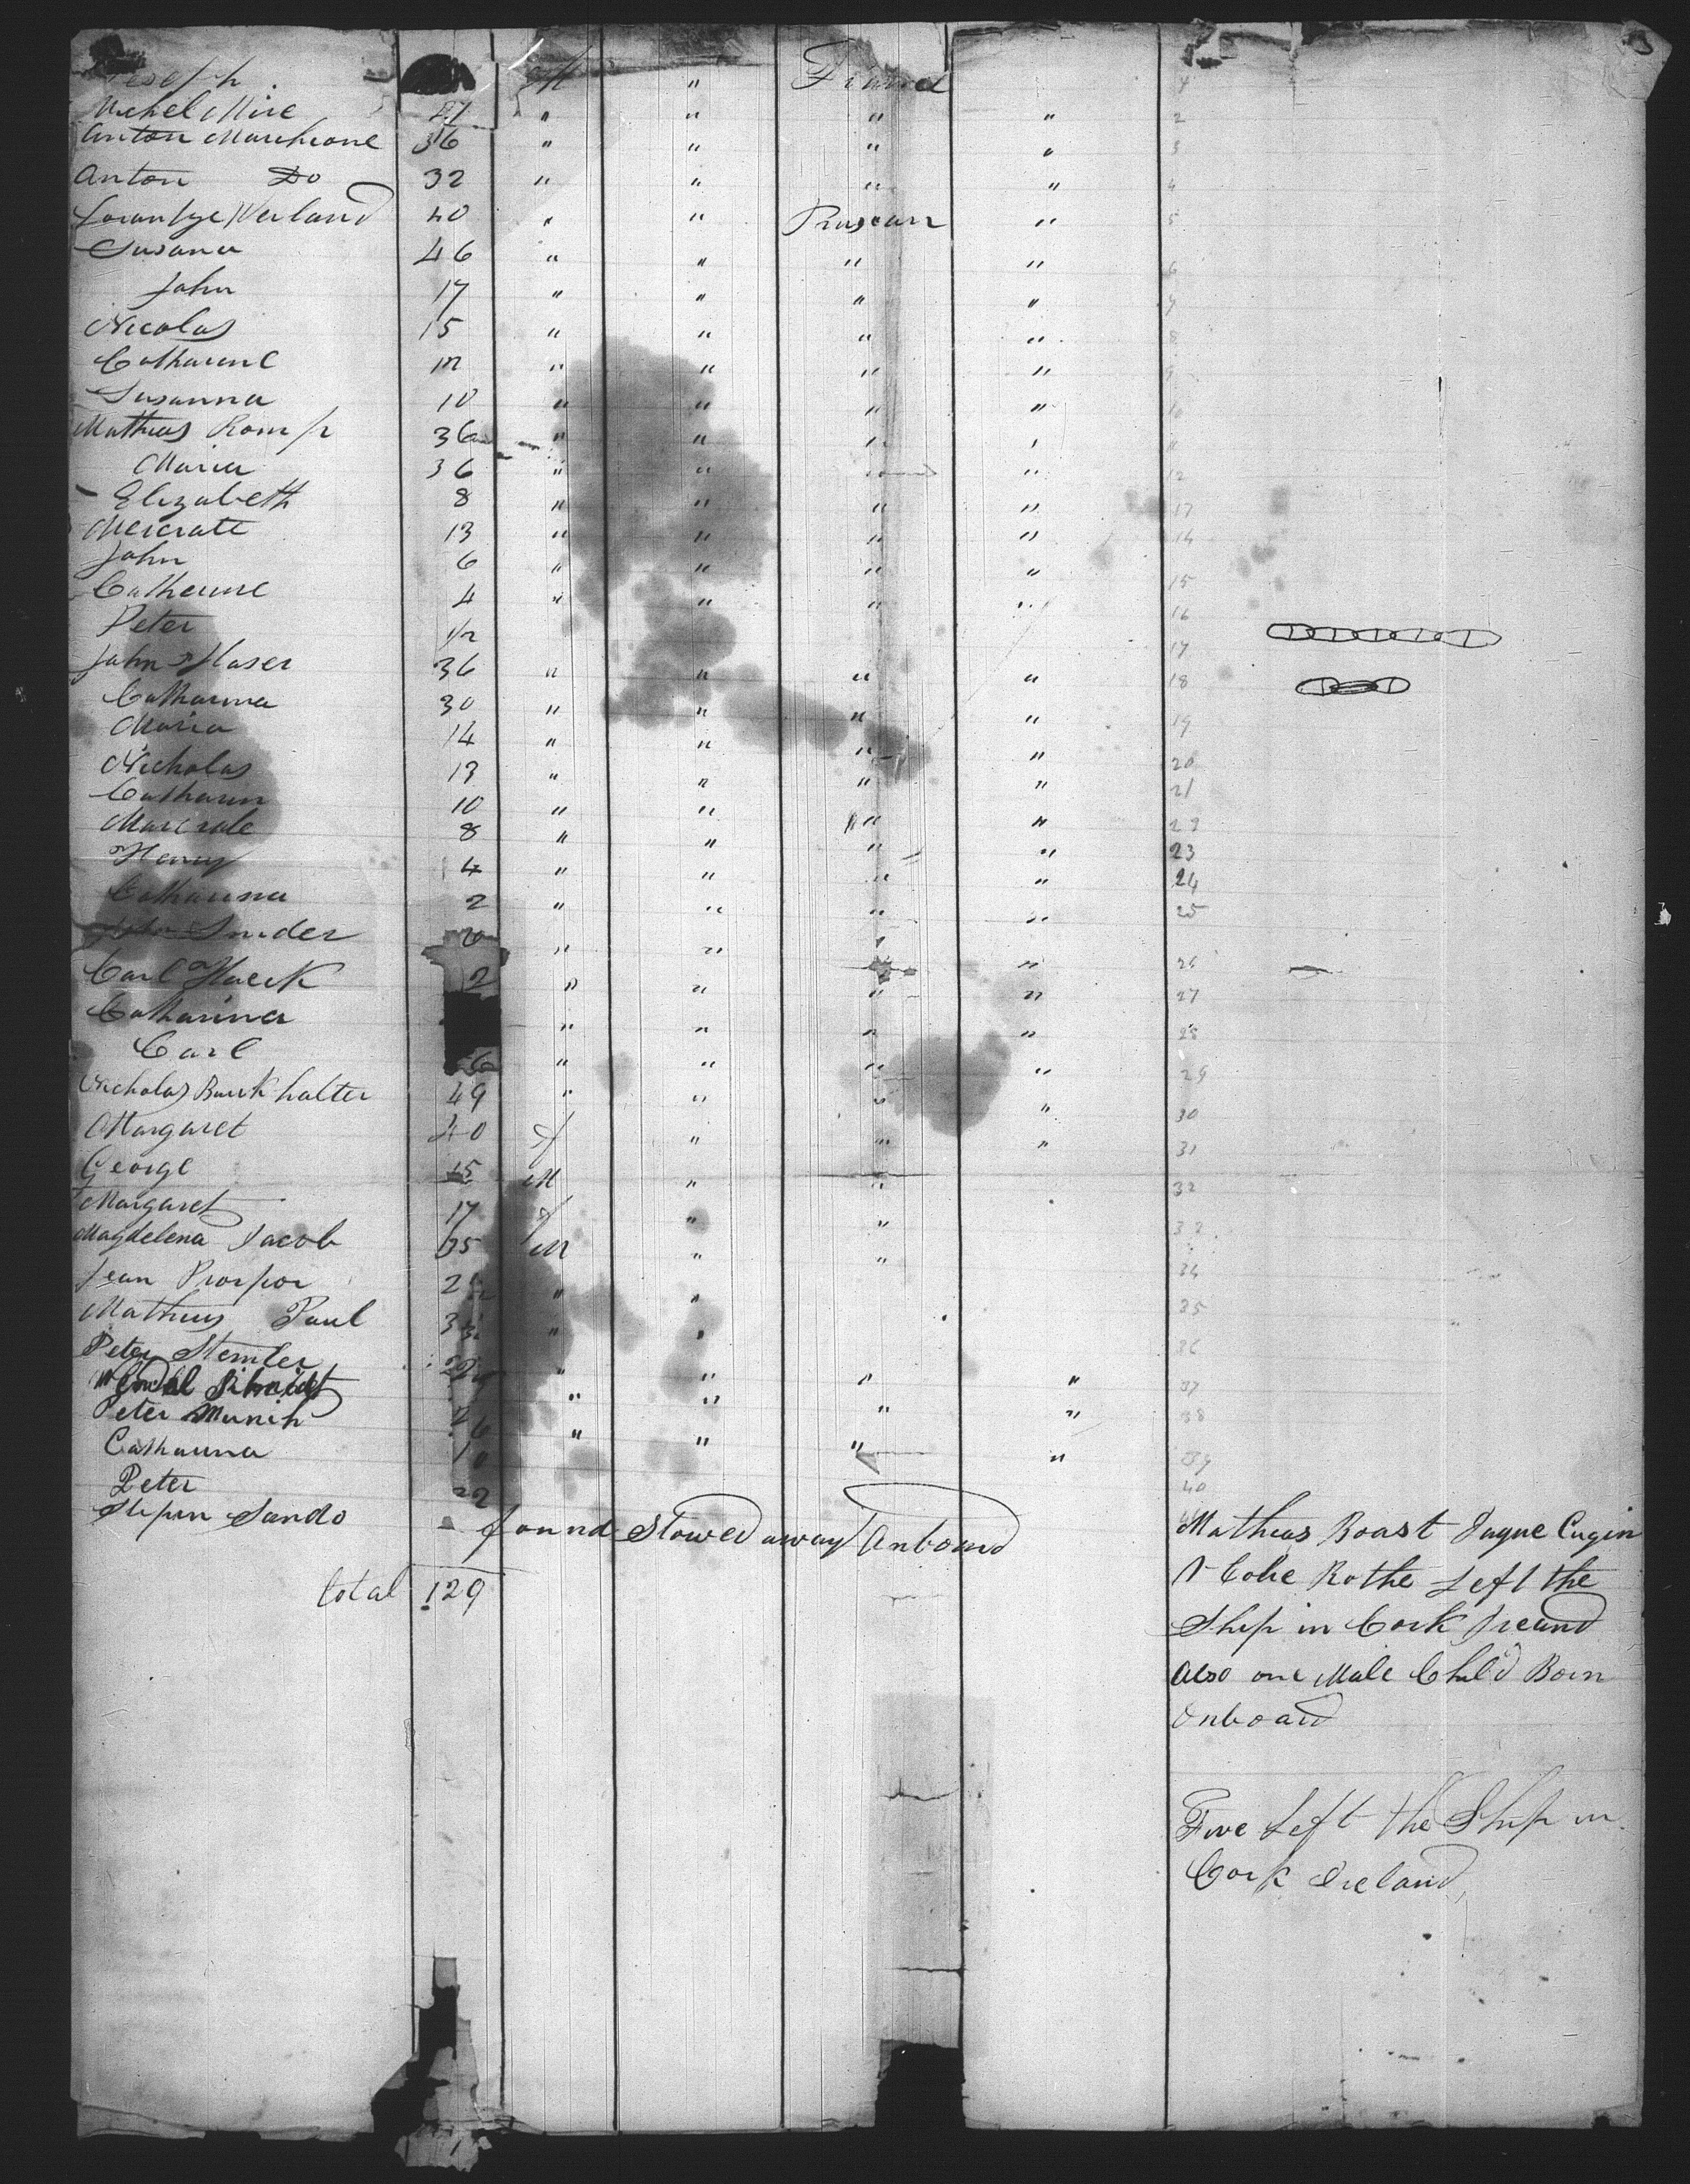 Joseph M " France
Michel Mire 21 " " " "
Anton Marchione 36 " " " "
Anton Do 32 " " " "
Verland 40 " " Prusean "
Susana 46 " " " "
John 17 " " " "
Nicolas 15 " " " "
Catharine 12 " " " "
Susanna 10 " " " "
Mathias Romp 36 " " " "
Maria 36 " " " "
Elizabeth 8 " " " "
Mercrate 13 " " " "
John 6 " " " "
Catherine 4 " " " "
Peter 1/2
John Haser 36 " " " " 18
Catharina 30 " " " " 19
Maria 14 " " " " 20
Nicholas 13 " " " " 21
Catharin 10 " " " "
Marcrate 8 " " " " 23
Henry 4 " " " " 24
Catharina 2 " " " " 25
Snider " " "
Carl Haeck 2 " " " " 27
Catharina " " " " 28
Carl 6 " " " " 29
Nicholas Burkhalter 49 " " " " 30
Margaret 40 f " " " 31
George 15 M " " 32
Margaret 17 f " "
Magdelena Jacob 35 M " " 34
Jean Prorpor " " 35
Mathius Paul " " 36
Peter Stemler " " " " 37
Wendal Schmidt " " " " 38
Peter Munih " " " " 39
Catharina 40
Peter
Stepen Sando found Stowed away Onboard
total 129
Mathias Roast
Rothe Left the
Ship in Cork Ireand
Also one Male Child Born
Onboard
Five Left the Ship in
Cork Ireland